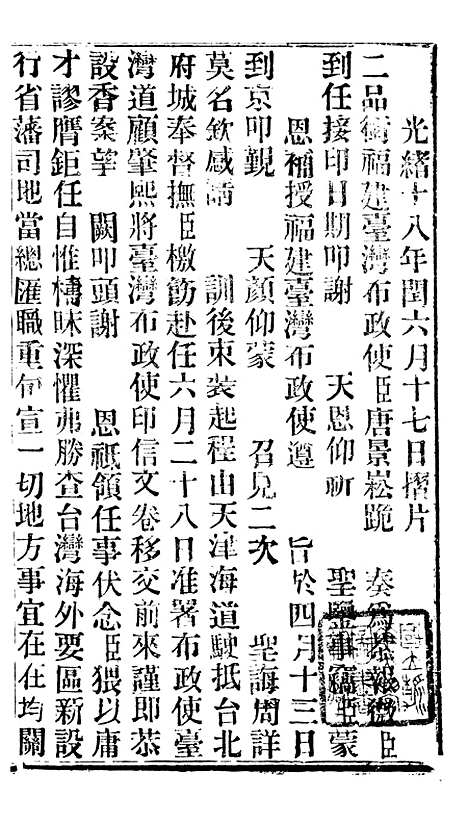 光緒十八年閏六月十七日摺片
二品銜福建臺灣布政使臣唐景崧跪 奏爲恭報微臣
到任接印日期叩謝 天恩仰祈 聖鑒事竊臣蒙
恩補授福建臺灣布政使遵 旨於四月十三日
到京叩覲 天顏仰蒙 召見二次 聖誨周詳
莫名欽感請 訓後束裝起程由天津海道駛抵台北
府城奉督撫臣檄飭赴任六月二十八日准署布政使臺
灣道顧肇熙將臺灣布政使印信文卷移交前來謹即恭
設香案望 闕叩頭謝 恩祗領任事伏念臣猥以庸
才謬膺鉅任自惟檮昧深懼弗勝查台灣海外要區新設
行省藩司地當總匯職重旬宣一切地方事宜在在均關